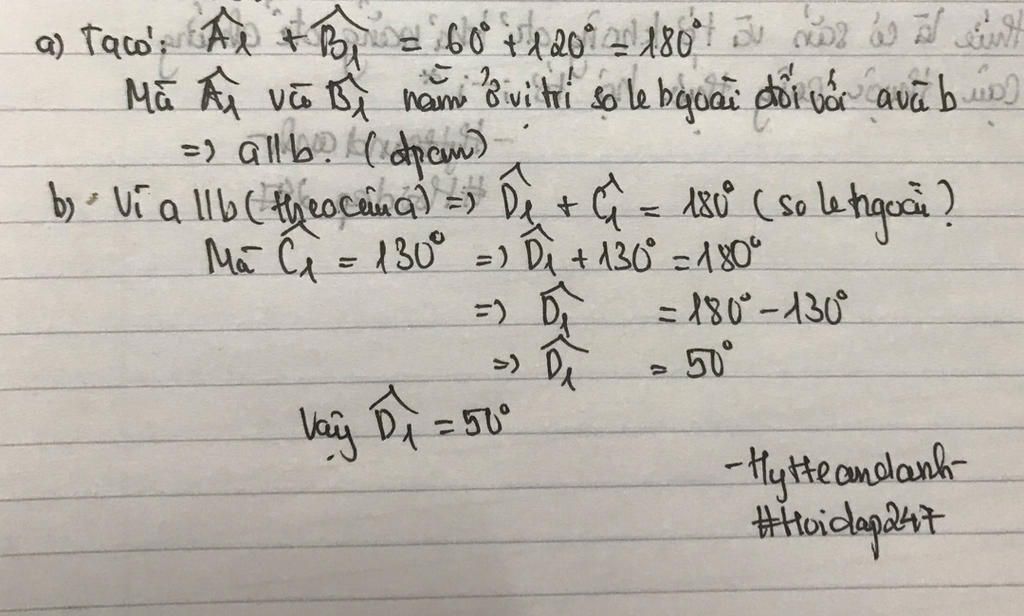 a) Ta có: Â₁ + B̂₁ = 60° + 120° = 180°
Mà Â₁ và B̂₁ nằm ở vị trí so le ngoài đối với a và b
=> a // b. (đpcm)
b) Vì a // b (theo câu a) => D̂₁ + Ĉ₁ = 180° (so le ngoài)
Mà Ĉ₁ = 130° => D̂₁ + 130° = 180°
=> D̂₁ = 180° - 130°
=> D̂₁ = 50°
Vậy D̂₁ = 50°
-Hytteandanh-
#Hoidap247